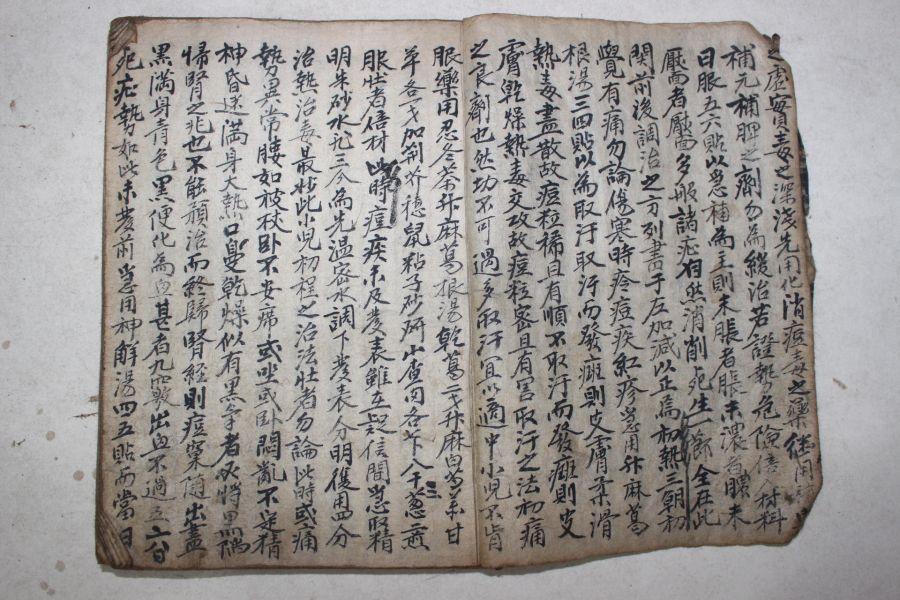 之虛實毒之深淺先用化消痘毒之藥繼用
補元補脾之劑勿爲緩治若證勢危險倍入材料
日服五六貼以急補爲主則未脹者脹未濃者膿未
壓者壓而多般諸症自然消削死生一節全在此
関前後調治之方列書于左加減以正爲初熱三朝初
覺有痛勿論傷寒時疹痘疾紅疹急用升麻葛
根湯三四貼以爲取汗取汗而發癍則皮膚柔滑
熱毒盡散故痘粒稀且有順不取汗而發癍則皮
膚乾燥熱毒交攻故痘粒密且有害取汗之法初痛
之良劑也然功不可過多取汗宜以適中小児不肯
服藥用忍冬茶升麻葛根湯乾葛二戈升麻白芍藥甘
草各一戈加荊芥穗鼠粘子炒研山查肉各 八干葱煎
服壯者倍材此時痘疾未及發表雖在 信間急取精
明朱砂水飛三分爲先温蜜水調下發表分明後用四分
治熱治毒最妙此小児初程之治法壯者勿論此時或痛
勢異常腰如被杖卧不安席或坐或卧悶亂不定精
神昏迷滿身大熱口 乾燥似有黑 者必將黑陷
歸腎之兆也不能預治而終歸腎經則痘窠隨出盡
黑滿身青色黑便化爲血甚者九竅出血不過五六日
死症勢如此未發前急用神解湯四五貼而當日